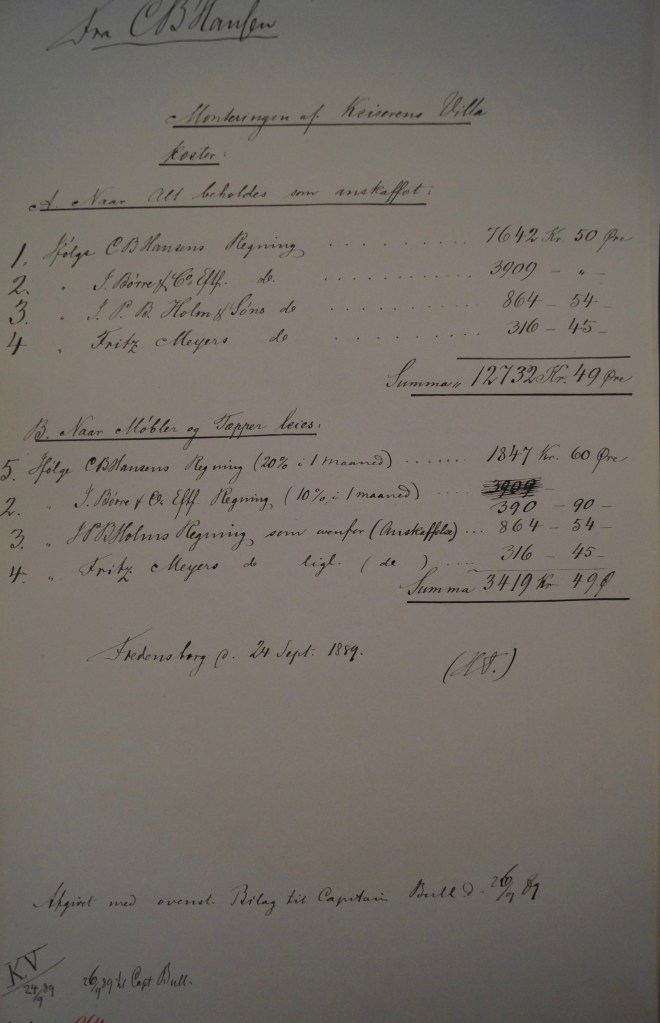 Fra CBHansen
Monteringen af Keiserens Villa
koster:
A. Naar Alt beholdes som anskaffet:
1. Ifølge CBHansens Regning . . . . . . . . . . 7642 Kr. 50 Øre
2. " I. Børre & Co Eftf. do. . . . . . . . . . . . 3909 - " -
3. " I. P. B. Holm & Søns do . . . . . . . . . . 864 - 54 -
4 " Fritz Meyers do . . . . . . . . . . 316 - 45 -
Summa " 12732 Kr. 49 Øre
B. Naar Møbler og Tæpper leies:
5. Ifølge CBHansens Regning (20% i 1 maaned) . . . . . . 1847 Kr. 60 Øre
3909
2. " I. Børre & Co Eftf. Regning, (10% i 1 maaned) . . . 390 - 90 -
3. " IPBHolms Regning som ovenfor (Anskaffelse) . . . 864 - 54 -
4. " Fritz Meyers do ligl. (do) . . . . 316 - 45 -
Summa 3419 Kr 49 Ø
Fredensborg d. 24 Sept. 1889.
Afgivet med ovend. Bilag til Capitain Bull d. 26/9 89
KV
24/9 89
26/9 89 Capt Bull.